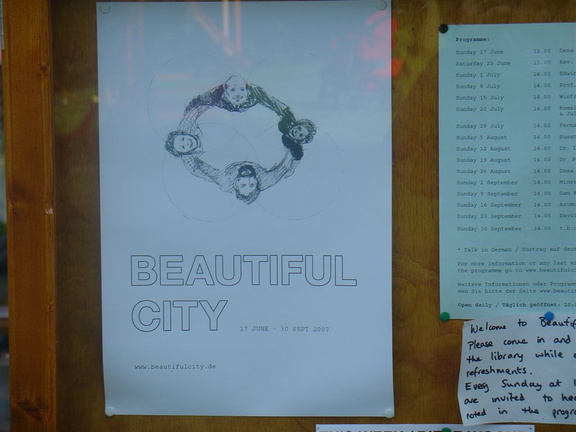 BEAUTIFUL
CITY
17 JUNE - 30 SEPT 2007
www.beautifulcity.de
Programme:
Sunday 17 June 15.00
Saturday 23 June 15.00 Rev.
Sunday 1 July 14.00
Sunday 8 July 14.00 Prof.
Sunday 15 July 14.00
Sunday 22 July 14.00
& Jul
Sunday 29 July 14.00
Sunday 5 August 14.00
Sunday 12 August 14.00 Dr.
Sunday 19 August 14.00 Dr.
Sunday 26 August 14.00
Sunday 2 September 14.00
Sunday 9 September 14.00
Sunday 16 September 14.00
Sunday 23 September 14.00
Sunday 30 September 14.00 t.b.c
* Talk in German / Vortrag auf
For more information or any last
the programme go to www.beautifulc
Weitere Informationen oder
men Sie bitte der Seite www.beauti
Open daily / Täglich geöffnet: 10.
Welcome to Beautif
Please come in and
the library while
refreshments.
Every Sunday at
are invited to hea
noted in the progra